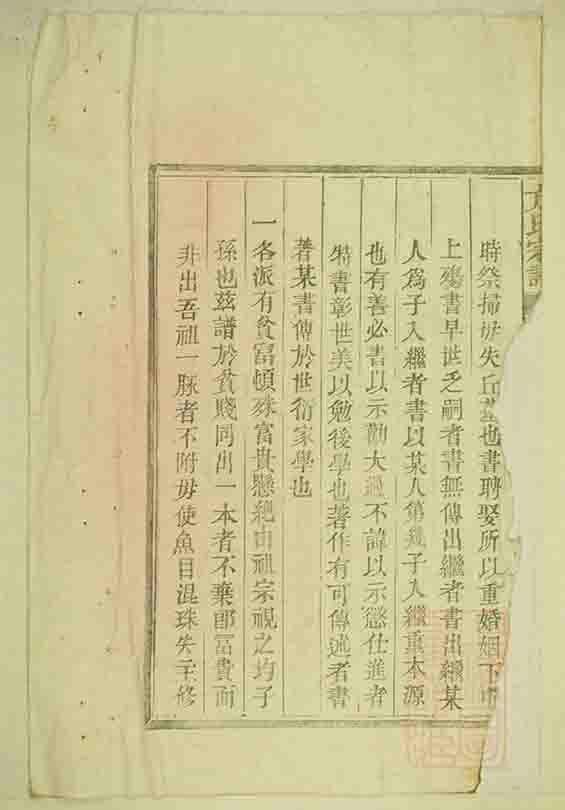 氏宗譜
時祭掃毋失丘墓也書聘娶所以重婚姻下中
上殤書早世乏嗣者書無傳出繼者書出繼某
人為子入繼者書以某人第幾子入繼重本源
也有善必書以示勸大過不諱以示懲仕進者
特書彰世美以勉後學也著作有可傳述者書
著某書傳於世衍家學也
一各派有貧富頓殊富貴懸絕由祖宗視之均子
孫也茲譜於貧賤同出一本者不棄郎富貴而
非出吾祖一脈者不附毋使魚目混珠失主修